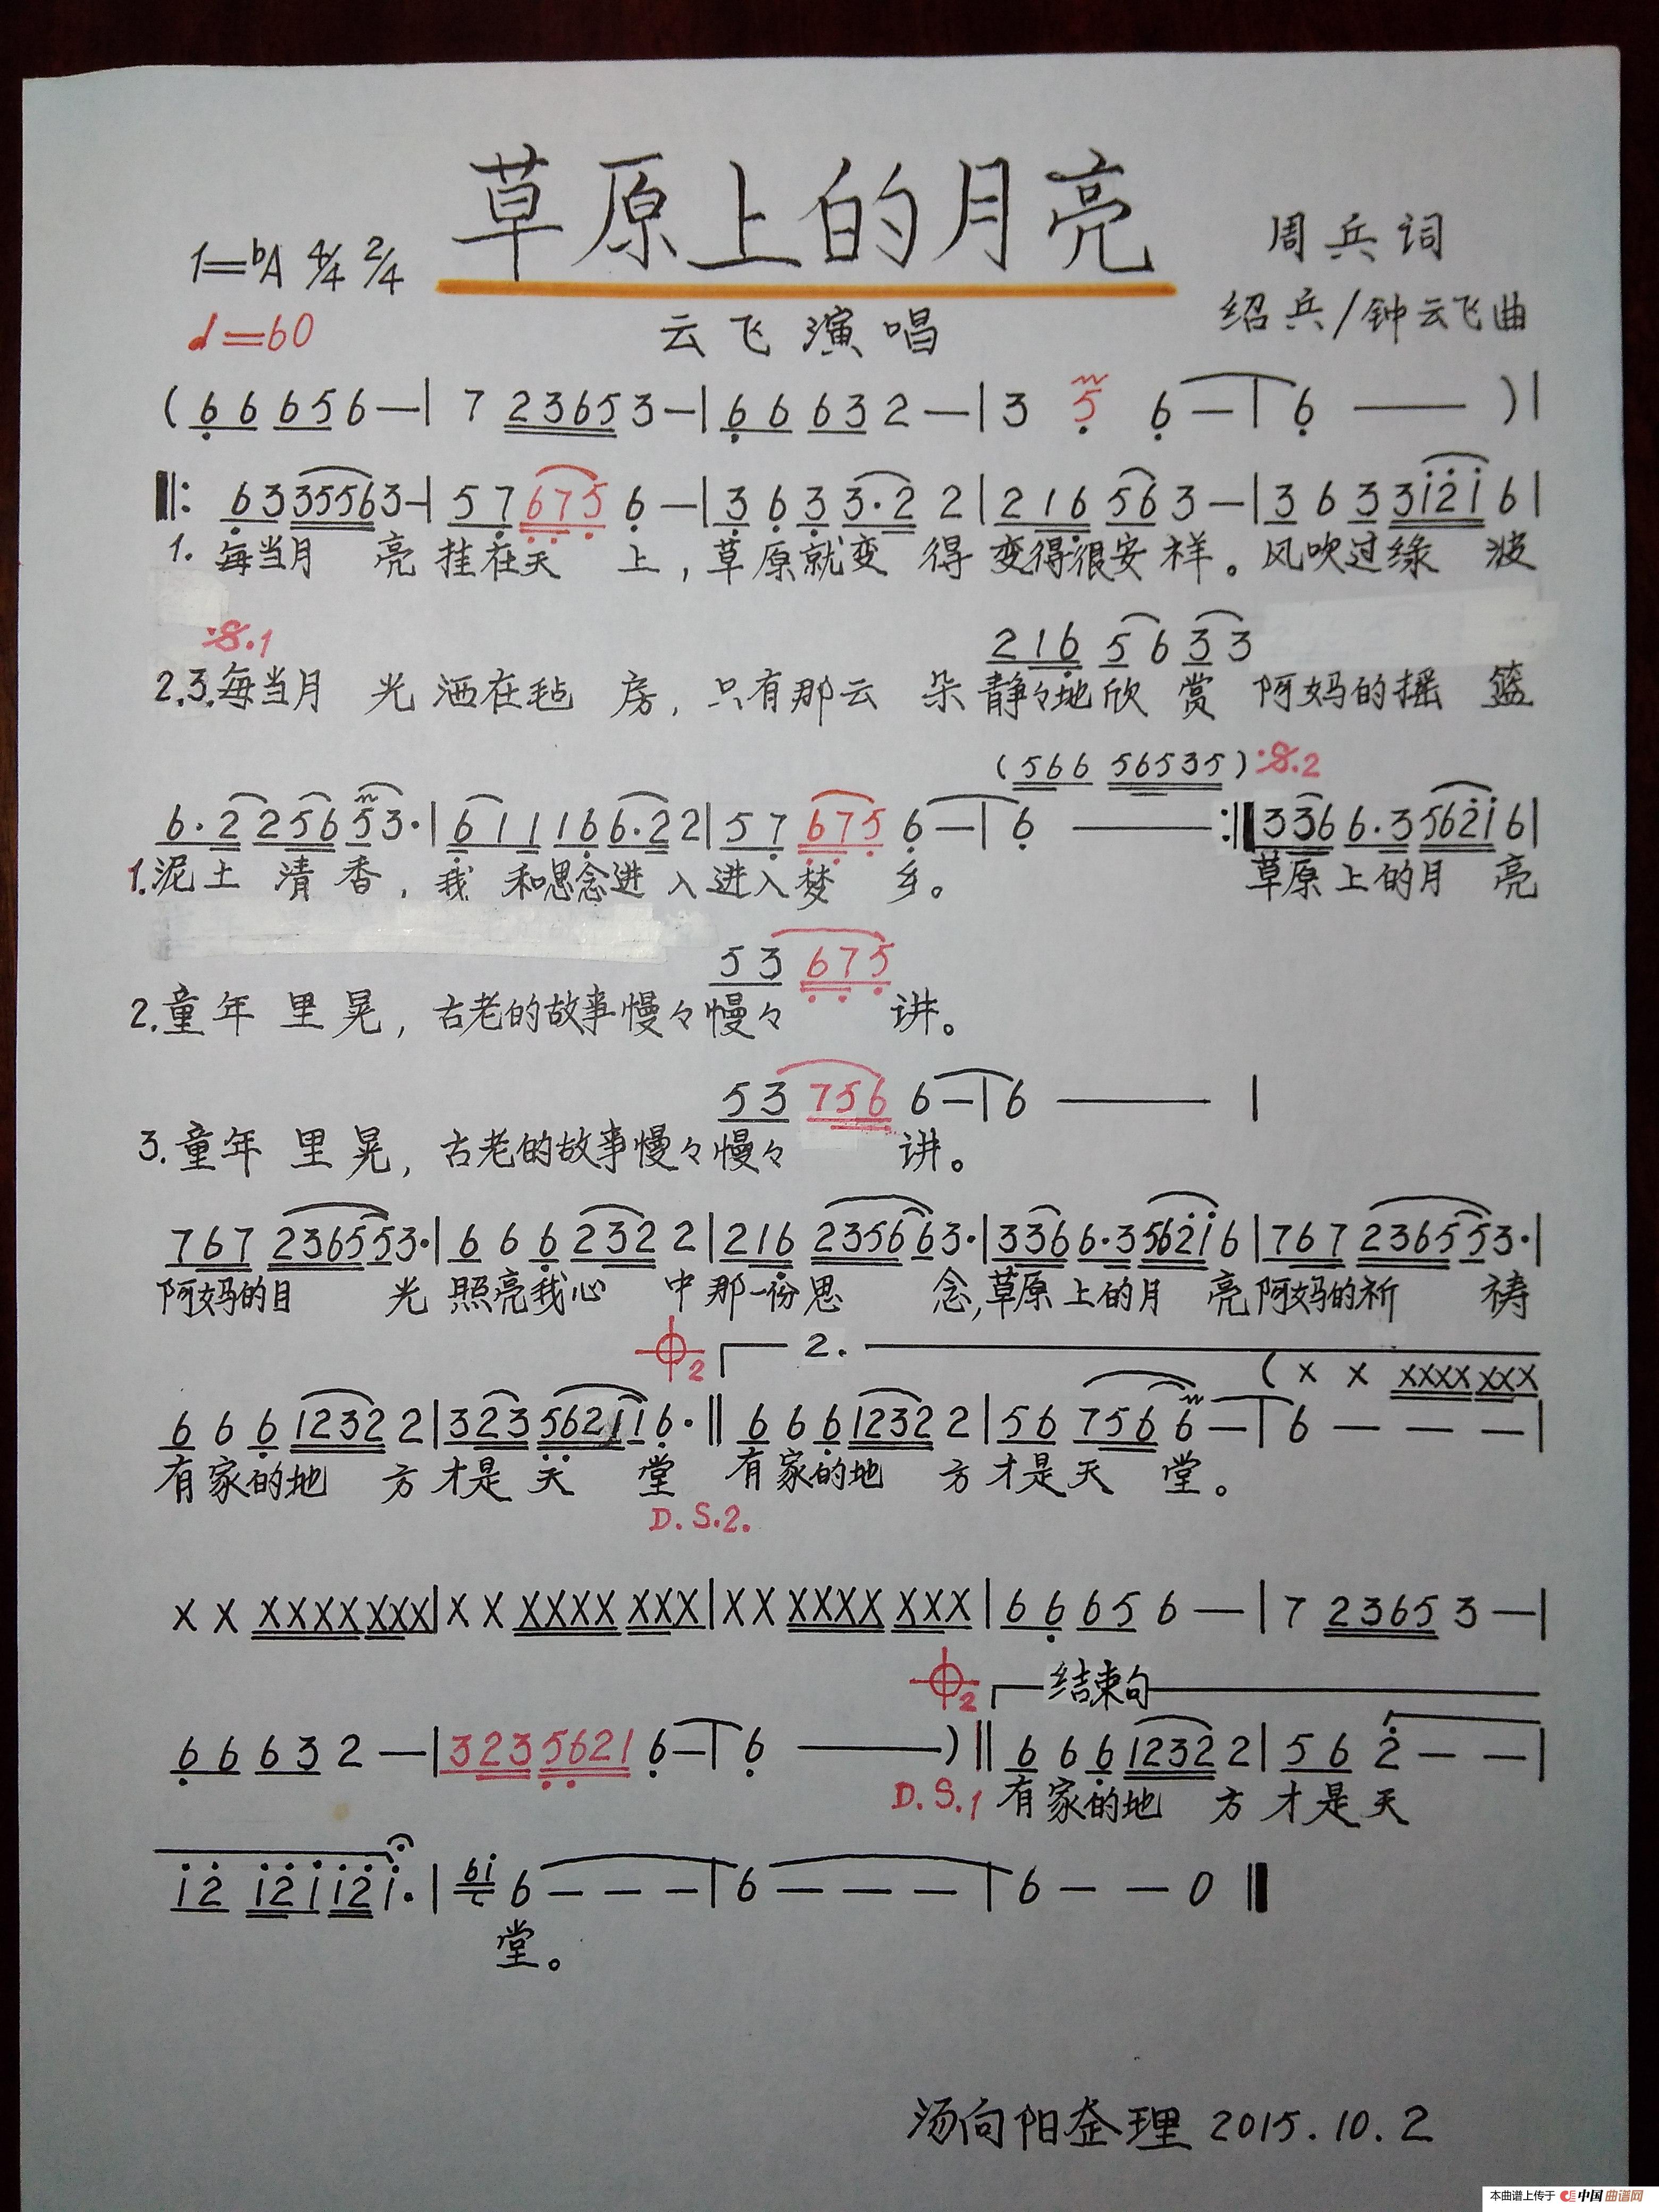 草原上的月亮
1=ᵇA 4/4 2/4
周兵词
♩=60
云飞演唱
绍兵/钟云飞曲
( 6̣ 6 6 5 6 — | 7 2 3 6 5 3 — | 6̣ 6 6 3 2 — | 3 5̣ 6̣ — | 6̣ —— ) |
‖: 6̣ 3 3 5 5 6 3 — | 5 7̣ 6̣ 7̣ 5̣ 6̣ — | 3̣ 6̣ 3̣ 3 · 2 2 | 2 1 6̣ 5 6 3 — | 3 6 3 3 i 2̇ i 6 |
1. 每当月 亮 挂在天 上，草原就变 得 变得很安 样。风吹过绿 波
𝄋.1
2 1 6̣ 5 6 3 3
2.3.每当月 光 洒在毡 房，只有那云 朵 静々地欣 赏 阿妈的摇 篮
( 5 6 6 5 6 5 3 5 ) 𝄋.2
6 · 2 2 5 6 5 3 · | 6̣ 1 1 1 6̣ 6 · 2 2 | 5 7̣ 6̣ 7̣ 5̣ 6̣ — | 6̣ —— :‖ 3 3 6 6 · 3 5 6 2̇ i 6 |
1.泥土 清 香，我 和思念进 入进入梦 乡。 草原上的月 亮
5 3 6̣ 7̣ 5̣
2.童年 里晃，古老的故事慢々慢々 讲。
5 3 7 5 6 6 — | 6 —— |
3.童年 里晃，古老的故事慢々慢々 讲。
7 6 7 2 3 6 5 5 3 · | 6 6 6̣ 2 3 2 2 | 2 1 6̣ 2 3 5 6 6 3 · | 3 3 6 6 · 3 5 6 2̇ i 6 | 7 6 7 2 3 6 5 5 3 · |
阿妈的目 光 照亮我心 中那一份思 念,草原上的月 亮阿妈的祈 祷
𝄌2 2.
( X X XXXX XXX
6 6 6̣ 1 2 3 2 2 | 3 2 3 5̣ 6̣ 2 1 1 6̣ · ‖ 6 6 6̣ 1 2 3 2 2 | 5 6 7 5 6 6 — | 6 — — — |
有家的地 方才是 天 堂 有家的地 方才是天 堂。
D.S.2.
X X XXXX XXX | X X XXXX XXX | X X XXXX XXX | 6 6̣ 6 5 6 — | 7 2 3 6 5 3 — |
𝄌2 结束句
6̣ 6 6 3 2 — | 3 2 3 5̣ 6̣ 2 1 6̣ — | 6̣ —— ) ‖ 6 6 6̣ 1 2 3 2 2 | 5 6 2̇ — — |
D.S.1 有家的地 方才是天
i 2̇ i 2̇ i i 2̇ i · | 6i 6 — — — | 6 — — — | 6 — — 0 ‖
堂。
汤向阳整理 2015.10.2
本曲谱上传于 中国曲谱网